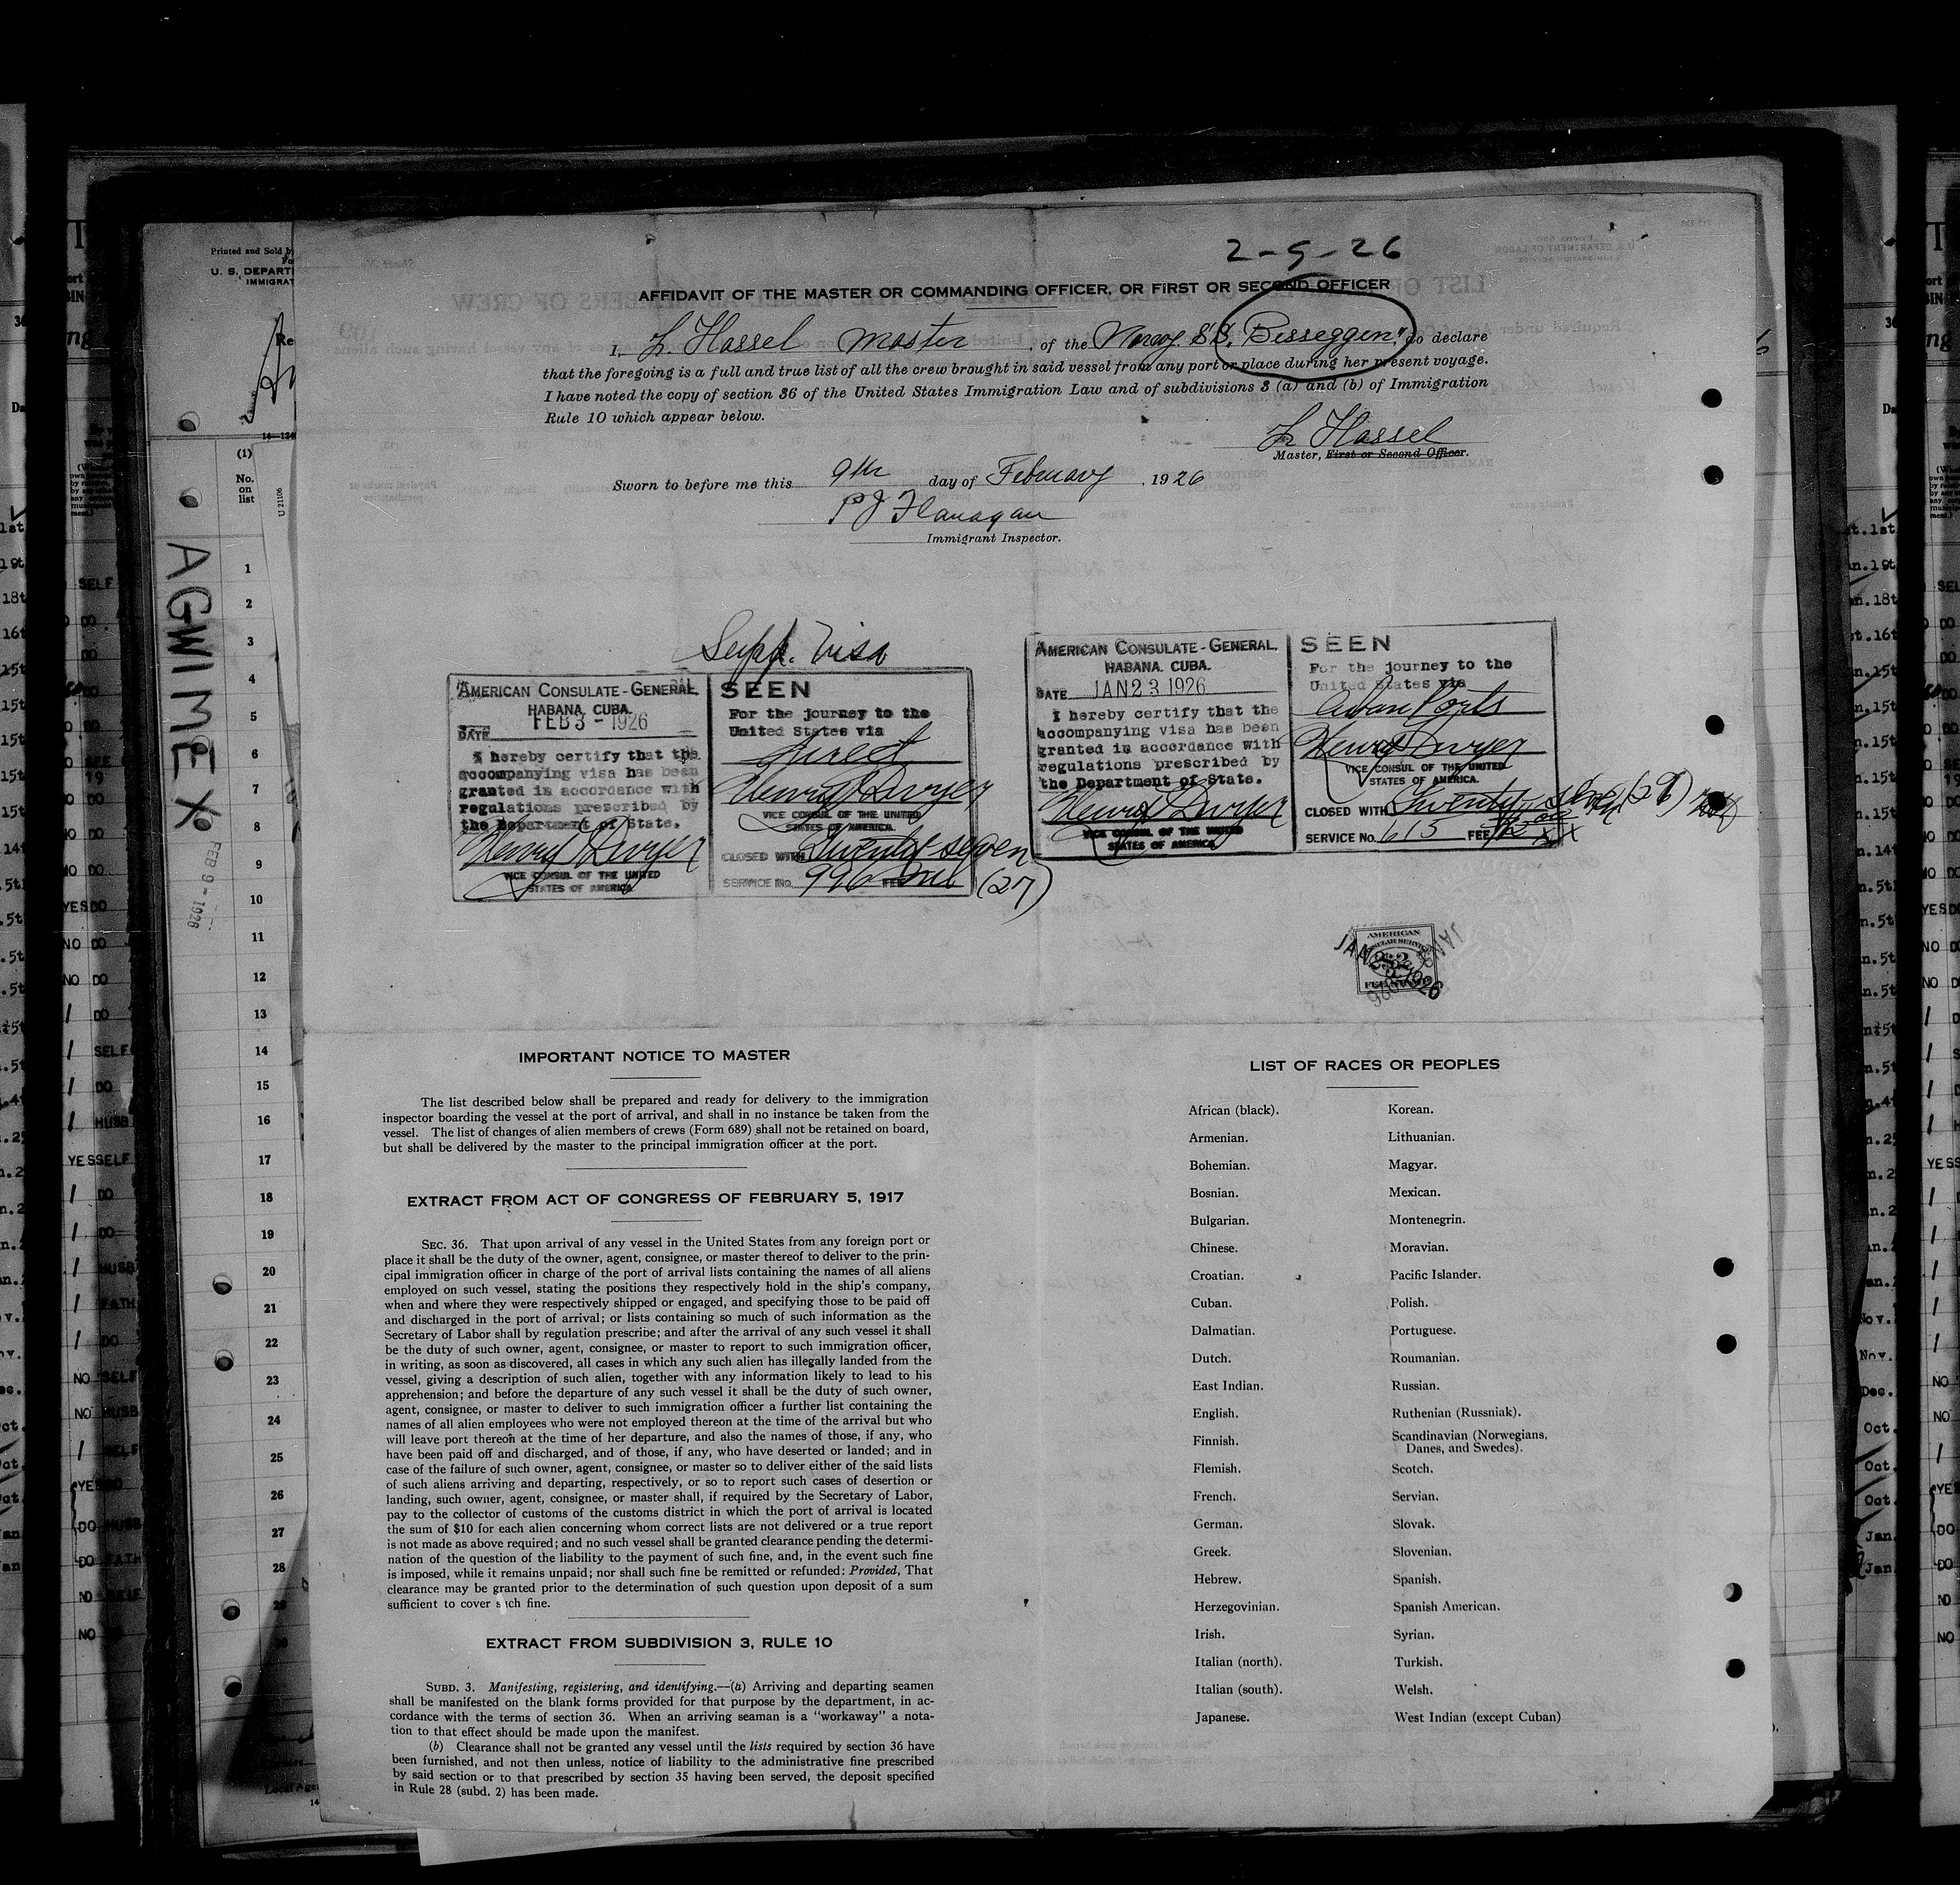 2-9-26
AFFIDAVIT OF THE MASTER OR COMMANDING OFFICER, OR FIRST OR SECOND OFFICER
I, L. Hassel master, of the Norwg. S.S. "Besseggen", do declare
that the foregoing is a full and true list of all the crew brought in said vessel from any port or place during her present voyage.
I have noted the copy of section 36 of the United States Immigration Law and of subdivisions 3 (a) and (b) of Immigration
Rule 10 which appear below.
L. Hassel
Master, First or Second Officer.
Sworn to before me this 9th day of February, 1926
P J Flanagan
Immigrant Inspector.
Supp. Visa
AMERICAN CONSULATE-GENERAL,
HABANA, CUBA.
DATE FEB 3 - 1926
I hereby certify that the
accompanying visa has been
granted in accordance with
regulations prescribed by
the Department of State.
Henry Dwyer
VICE CONSUL OF THE UNITED
STATES OF AMERICA.
SEEN
For the journey to the
United States via
direct
Henry Dwyer
VICE CONSUL OF THE UNITED
STATES OF AMERICA.
CLOSED WITH Twenty seven
(27)
SERVICE No. 996 FEE
AMERICAN CONSULATE-GENERAL,
HABANA, CUBA.
DATE JAN 23 1926
I hereby certify that the
accompanying visa has been
granted in accordance with
regulations prescribed by
the Department of State.
Henry Dwyer
VICE CONSUL OF THE UNITED
STATES OF AMERICA.
SEEN
For the journey to the
United States via
Cuban Ports
Henry Dwyer
VICE CONSUL OF THE UNITED
STATES OF AMERICA.
CLOSED WITH Twenty seven (27)
SERVICE No. 615 FEE
AMERICAN
CONSULAR SERVICE
FEE STAMP
IMPORTANT NOTICE TO MASTER
The list described below shall be prepared and ready for delivery to the immigration
inspector boarding the vessel at the port of arrival, and shall in no instance be taken from the
vessel. The list of changes of alien members of crews (Form 689) shall not be retained on board,
but shall be delivered by the master to the principal immigration officer at the port.
EXTRACT FROM ACT OF CONGRESS OF FEBRUARY 5, 1917
SEC. 36. That upon arrival of any vessel in the United States from any foreign port or
place it shall be the duty of the owner, agent, consignee, or master thereof to deliver to the prin-
cipal immigration officer in charge of the port of arrival lists containing the names of all aliens
employed on such vessel, stating the positions they respectively hold in the ship's company,
when and where they were respectively shipped or engaged, and specifying those to be paid off
and discharged in the port of arrival; or lists containing so much of such information as the
Secretary of Labor shall by regulation prescribe; and after the arrival of any such vessel it shall
be the duty of such owner, agent, consignee, or master to report to such immigration officer,
in writing, as soon as discovered, all cases in which any such alien has illegally landed from the
vessel, giving a description of such alien, together with any information likely to lead to his
apprehension; and before the departure of any such vessel it shall be the duty of such owner,
agent, consignee, or master to deliver to such immigration officer a further list containing the
names of all alien employees who were not employed thereon at the time of the arrival but who
will leave port thereon at the time of her departure, and also the names of those, if any, who
have been paid off and discharged, and of those, if any, who have deserted or landed; and in
case of the failure of such owner, agent, consignee, or master so to deliver either of the said lists
of such aliens arriving and departing, respectively, or so to report such cases of desertion or
landing, such owner, agent, consignee, or master shall, if required by the Secretary of Labor,
pay to the collector of customs of the customs district in which the port of arrival is located
the sum of $10 for each alien concerning whom correct lists are not delivered or a true report
is not made as above required; and no such vessel shall be granted clearance pending the determi-
nation of the question of the liability to the payment of such fine, and, in the event such fine
is imposed, while it remains unpaid; nor shall such fine be remitted or refunded: Provided, That
clearance may be granted prior to the determination of such question upon deposit of a sum
sufficient to cover such fine.
EXTRACT FROM SUBDIVISION 3, RULE 10
SUBD. 3. Manifesting, registering, and identifying.—(a) Arriving and departing seamen
shall be manifested on the blank forms provided for that purpose by the department, in ac-
cordance with the terms of section 36. When an arriving seaman is a "workaway" a nota-
tion to that effect should be made upon the manifest.
(b) Clearance shall not be granted any vessel until the lists required by section 36 have
been furnished, and not then unless, notice of liability to the administrative fine prescribed
by said section or to that prescribed by section 35 having been served, the deposit specified
in Rule 28 (subd. 2) has been made.
LIST OF RACES OR PEOPLES
African (black).
Armenian.
Bohemian.
Bosnian.
Bulgarian.
Chinese.
Croatian.
Cuban.
Dalmatian.
Dutch.
East Indian.
English.
Finnish.
Flemish.
French.
German.
Greek.
Hebrew.
Herzegovinian.
Irish.
Italian (north).
Italian (south).
Japanese.
Korean.
Lithuanian.
Magyar.
Mexican.
Montenegrin.
Moravian.
Pacific Islander.
Polish.
Portuguese.
Roumanian.
Russian.
Ruthenian (Russniak).
Scandinavian (Norwegians,
Danes, and Swedes).
Scotch.
Servian.
Slovak.
Slovenian.
Spanish.
Spanish American.
Syrian.
Turkish.
Welsh.
West Indian (except Cuban)
Printed and Sold by
U. S. DEPART
IMMIGRAT
(1)
No.
on
list
U 21106
AGWIMEX
FEB 9 - 1926
1
2
3
4
5
6
7
8
9
10
11
12
13
14
15
16
17
18
19
20
21
22
23
24
25
26
27
28
29
30